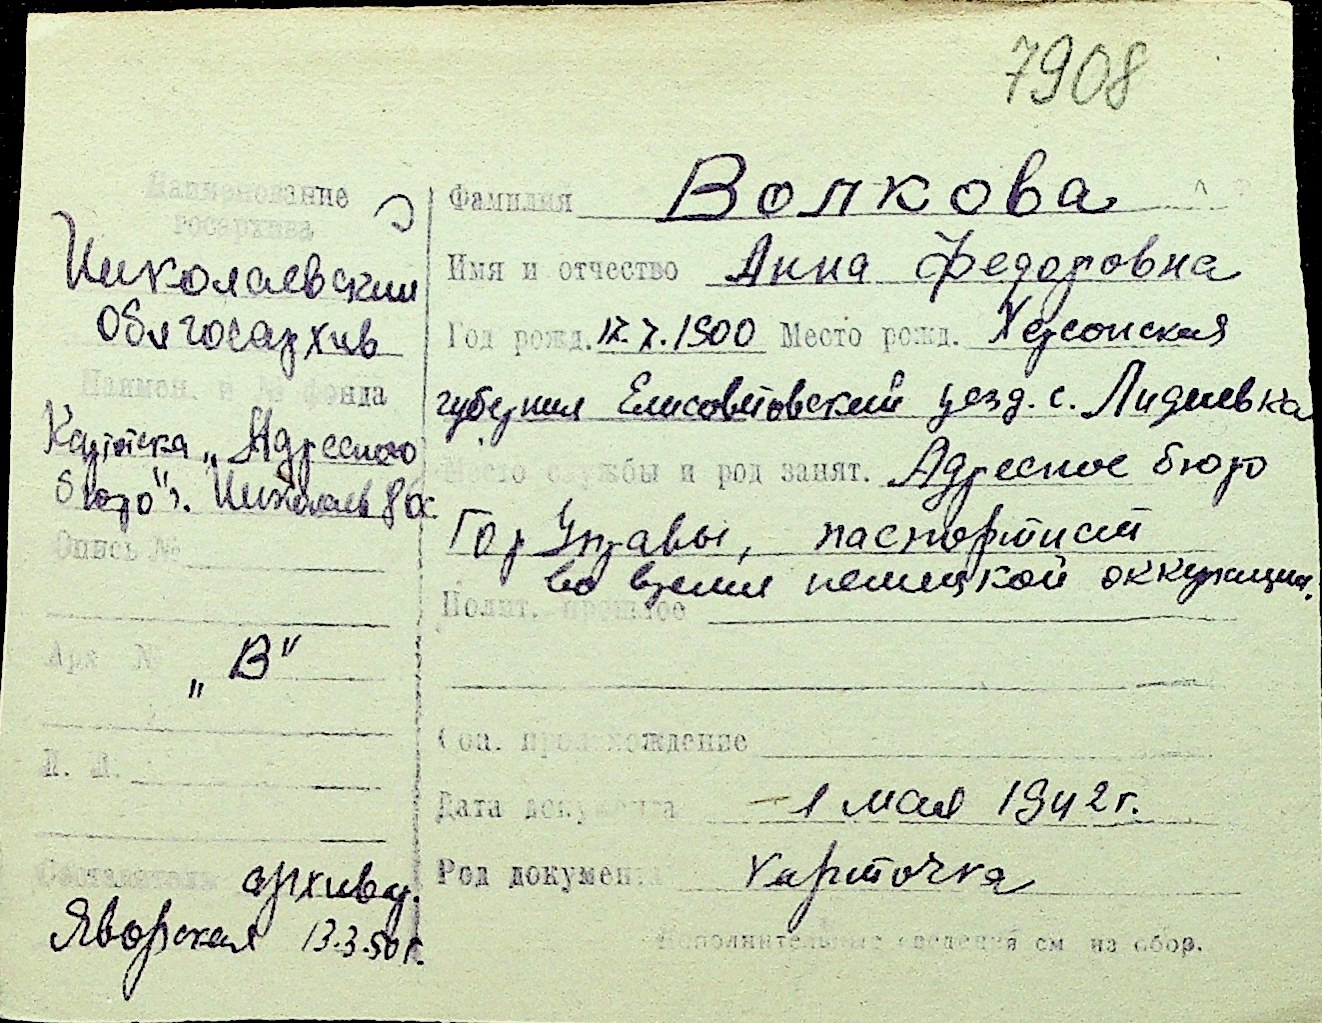 7908
Наименование
госархива
Николаевский
Облгосархив
Наимен. и № фонда
Картотека „Адресного
бюро" г. Николаев
Опись №
Арх №
„В"
Л. Л.
Составитель архивар.
Яворская 13.3.50г.
Фамилия Волкова
Имя и отчество Анна Федоровна
Год рожд. 17.7.1900 Место рожд. Херсонская
губерния Елисоветовский уезд. с. Лидиевка
Место службы и род занят. Адресное бюро
Гор Управы, паспортист
во время немецкой оккупации.
Полит. прошлое
Соц. происхождение
Дата документа 1 мая 1942 г.
Род документа карточка
Дополнительные сведения см на обор.